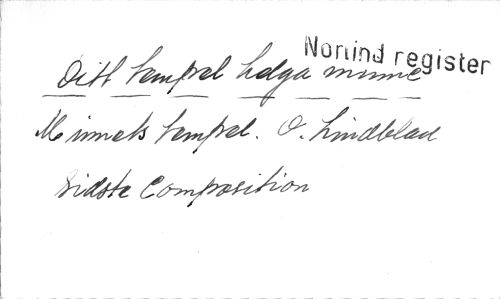 Norlind register
Ditt tempel helga minne
Minnets tempel. O. Lindblad
Sidste Composition